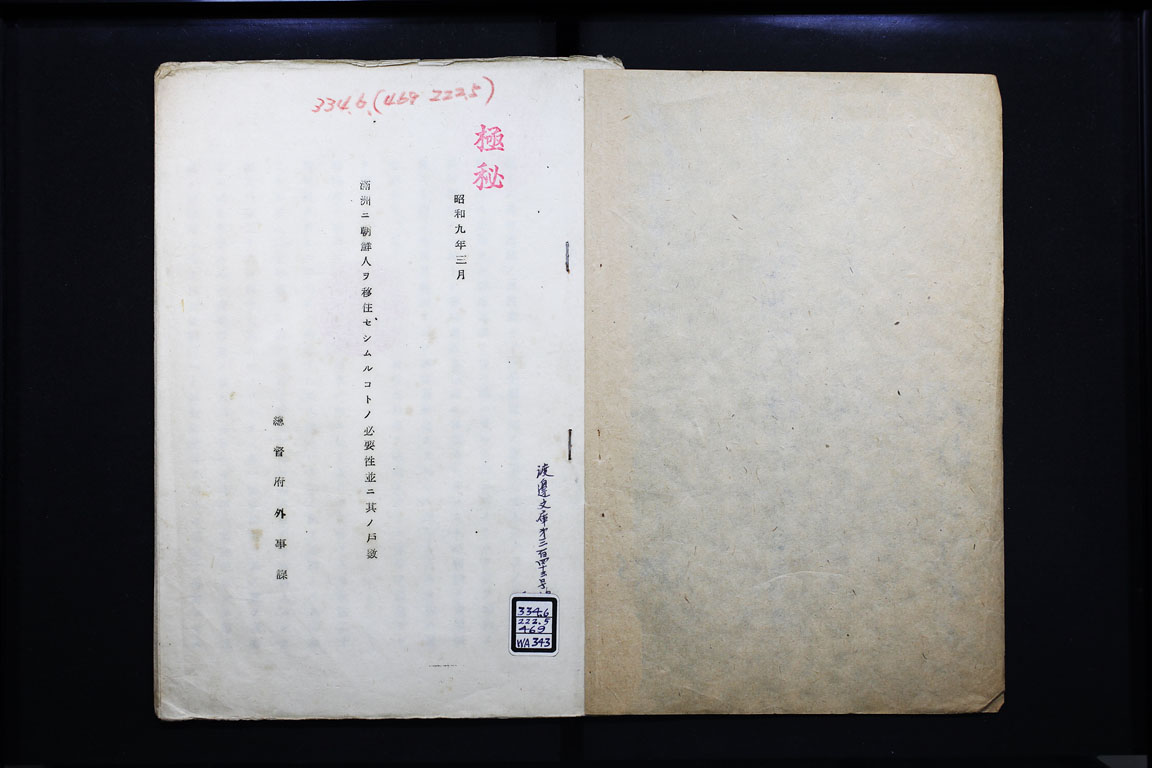 334.6 (469 222.5)
極秘
昭和九年三月
滿洲ニ朝鮮人ヲ移住セシムルコトノ必要性並ニ其ノ戶數
總督府外事課
渡邊文庫第三百四十三号
334.6
222.5
469
WA 343